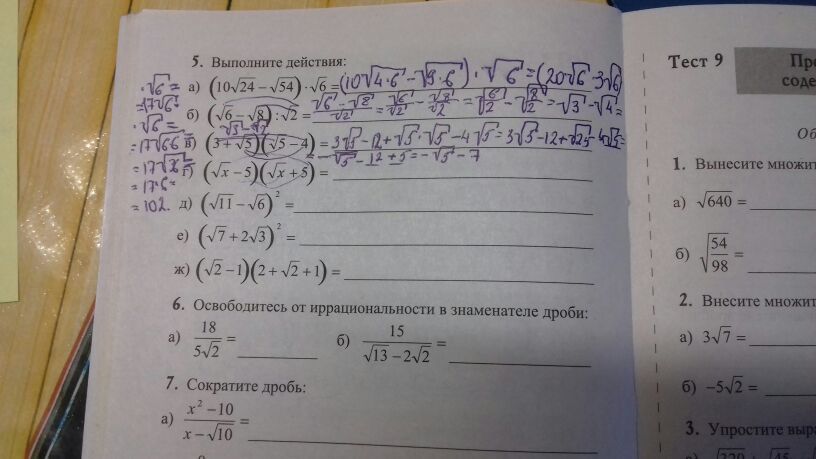 5. Выполните действия:
а) (10√24 − √54) · √6 = (10√4·6 − √9·6) · √6 = (20√6 − 3√6)
· √6 =
= 17√6 ·
· √6 =
= 17√66
= 17√36
= 17·6 =
= 102.
б) (√6 − √8) : √2 = (√6 − √8)/√2 = √6/√2 − √8/√2 = √(6/2) − √(8/2) = √3 − √4 =
√3 − √4
в) (3 + √5)(√5 − 4) = 3√5 − 12 + √5·√5 − 4√5 = 3√5 − 12 + √25 − 4√5 =
= −√5 − 12 + 5 = −√5 − 7
г) (√x − 5)(√x + 5) =
д) (√11 − √6)² =
е) (√7 + 2√3)² =
ж) (√2 − 1)(2 + √2 + 1) =
6. Освободитесь от иррациональности в знаменателе дроби:
а) 18/(5√2) = б) 15/(√13 − 2√2) =
7. Сократите дробь:
а) (x² − 10)/(x − √10) =
Тест 9
Пре
соде
Об
1. Вынесите множит
а) √640 =
б) √(54/98) =
2. Внесите множит
а) 3√7 =
б) −5√2 =
3. Упростите выра